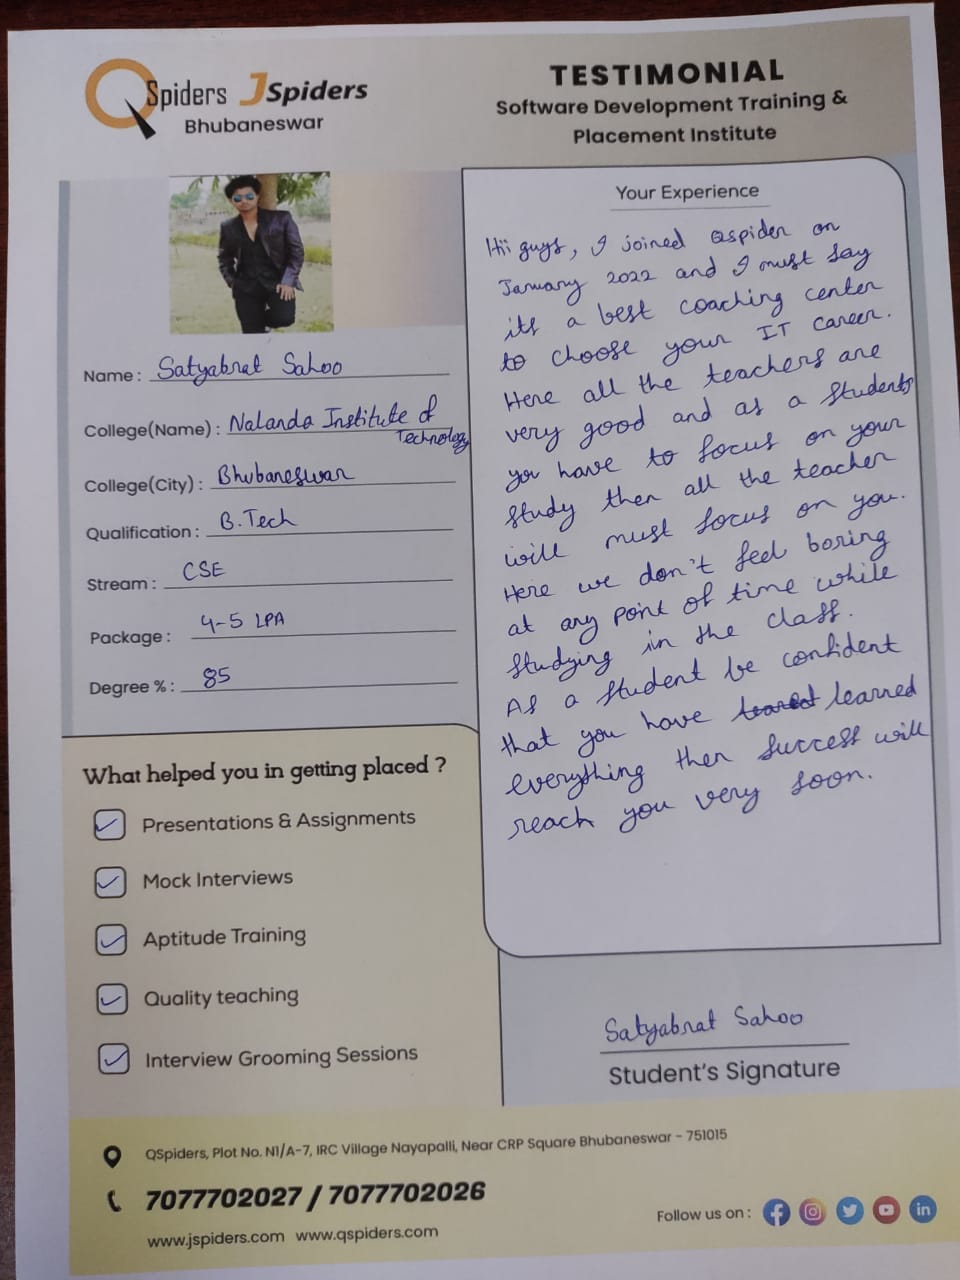 QSpiders JSpiders
Bhubaneswar
TESTIMONIAL
Software Development Training &
Placement Institute
Name : Satyabrat Sahoo
College(Name) : Nalanda Institute of
Technology
College(City) : Bhubaneswar
Qualification : B.Tech
Stream : CSE
Package : 4-5 LPA
Degree % : 85
Your Experience
Hii guys, I joined Qspider on
January 2022 and I must say
its a best coaching center
to choose your IT career.
Here all the teachers are
very good and as a students
you have to focus on your
study then all the teacher
will must focus on you.
Here we don't feel boring
at any point of time while
studying in the class.
As a student be confident
that you have learned
everything then success will
reach you very soon.
What helped you in getting placed ?
Presentations & Assignments
Mock Interviews
Aptitude Training
Quality teaching
Interview Grooming Sessions
Satyabrat Sahoo
Student's Signature
QSpiders, Plot No. N1/A-7, IRC Village Nayapalli, Near CRP Square Bhubaneswar - 751015
7077702027 / 7077702026
www.jspiders.com www.qspiders.com
Follow us on :